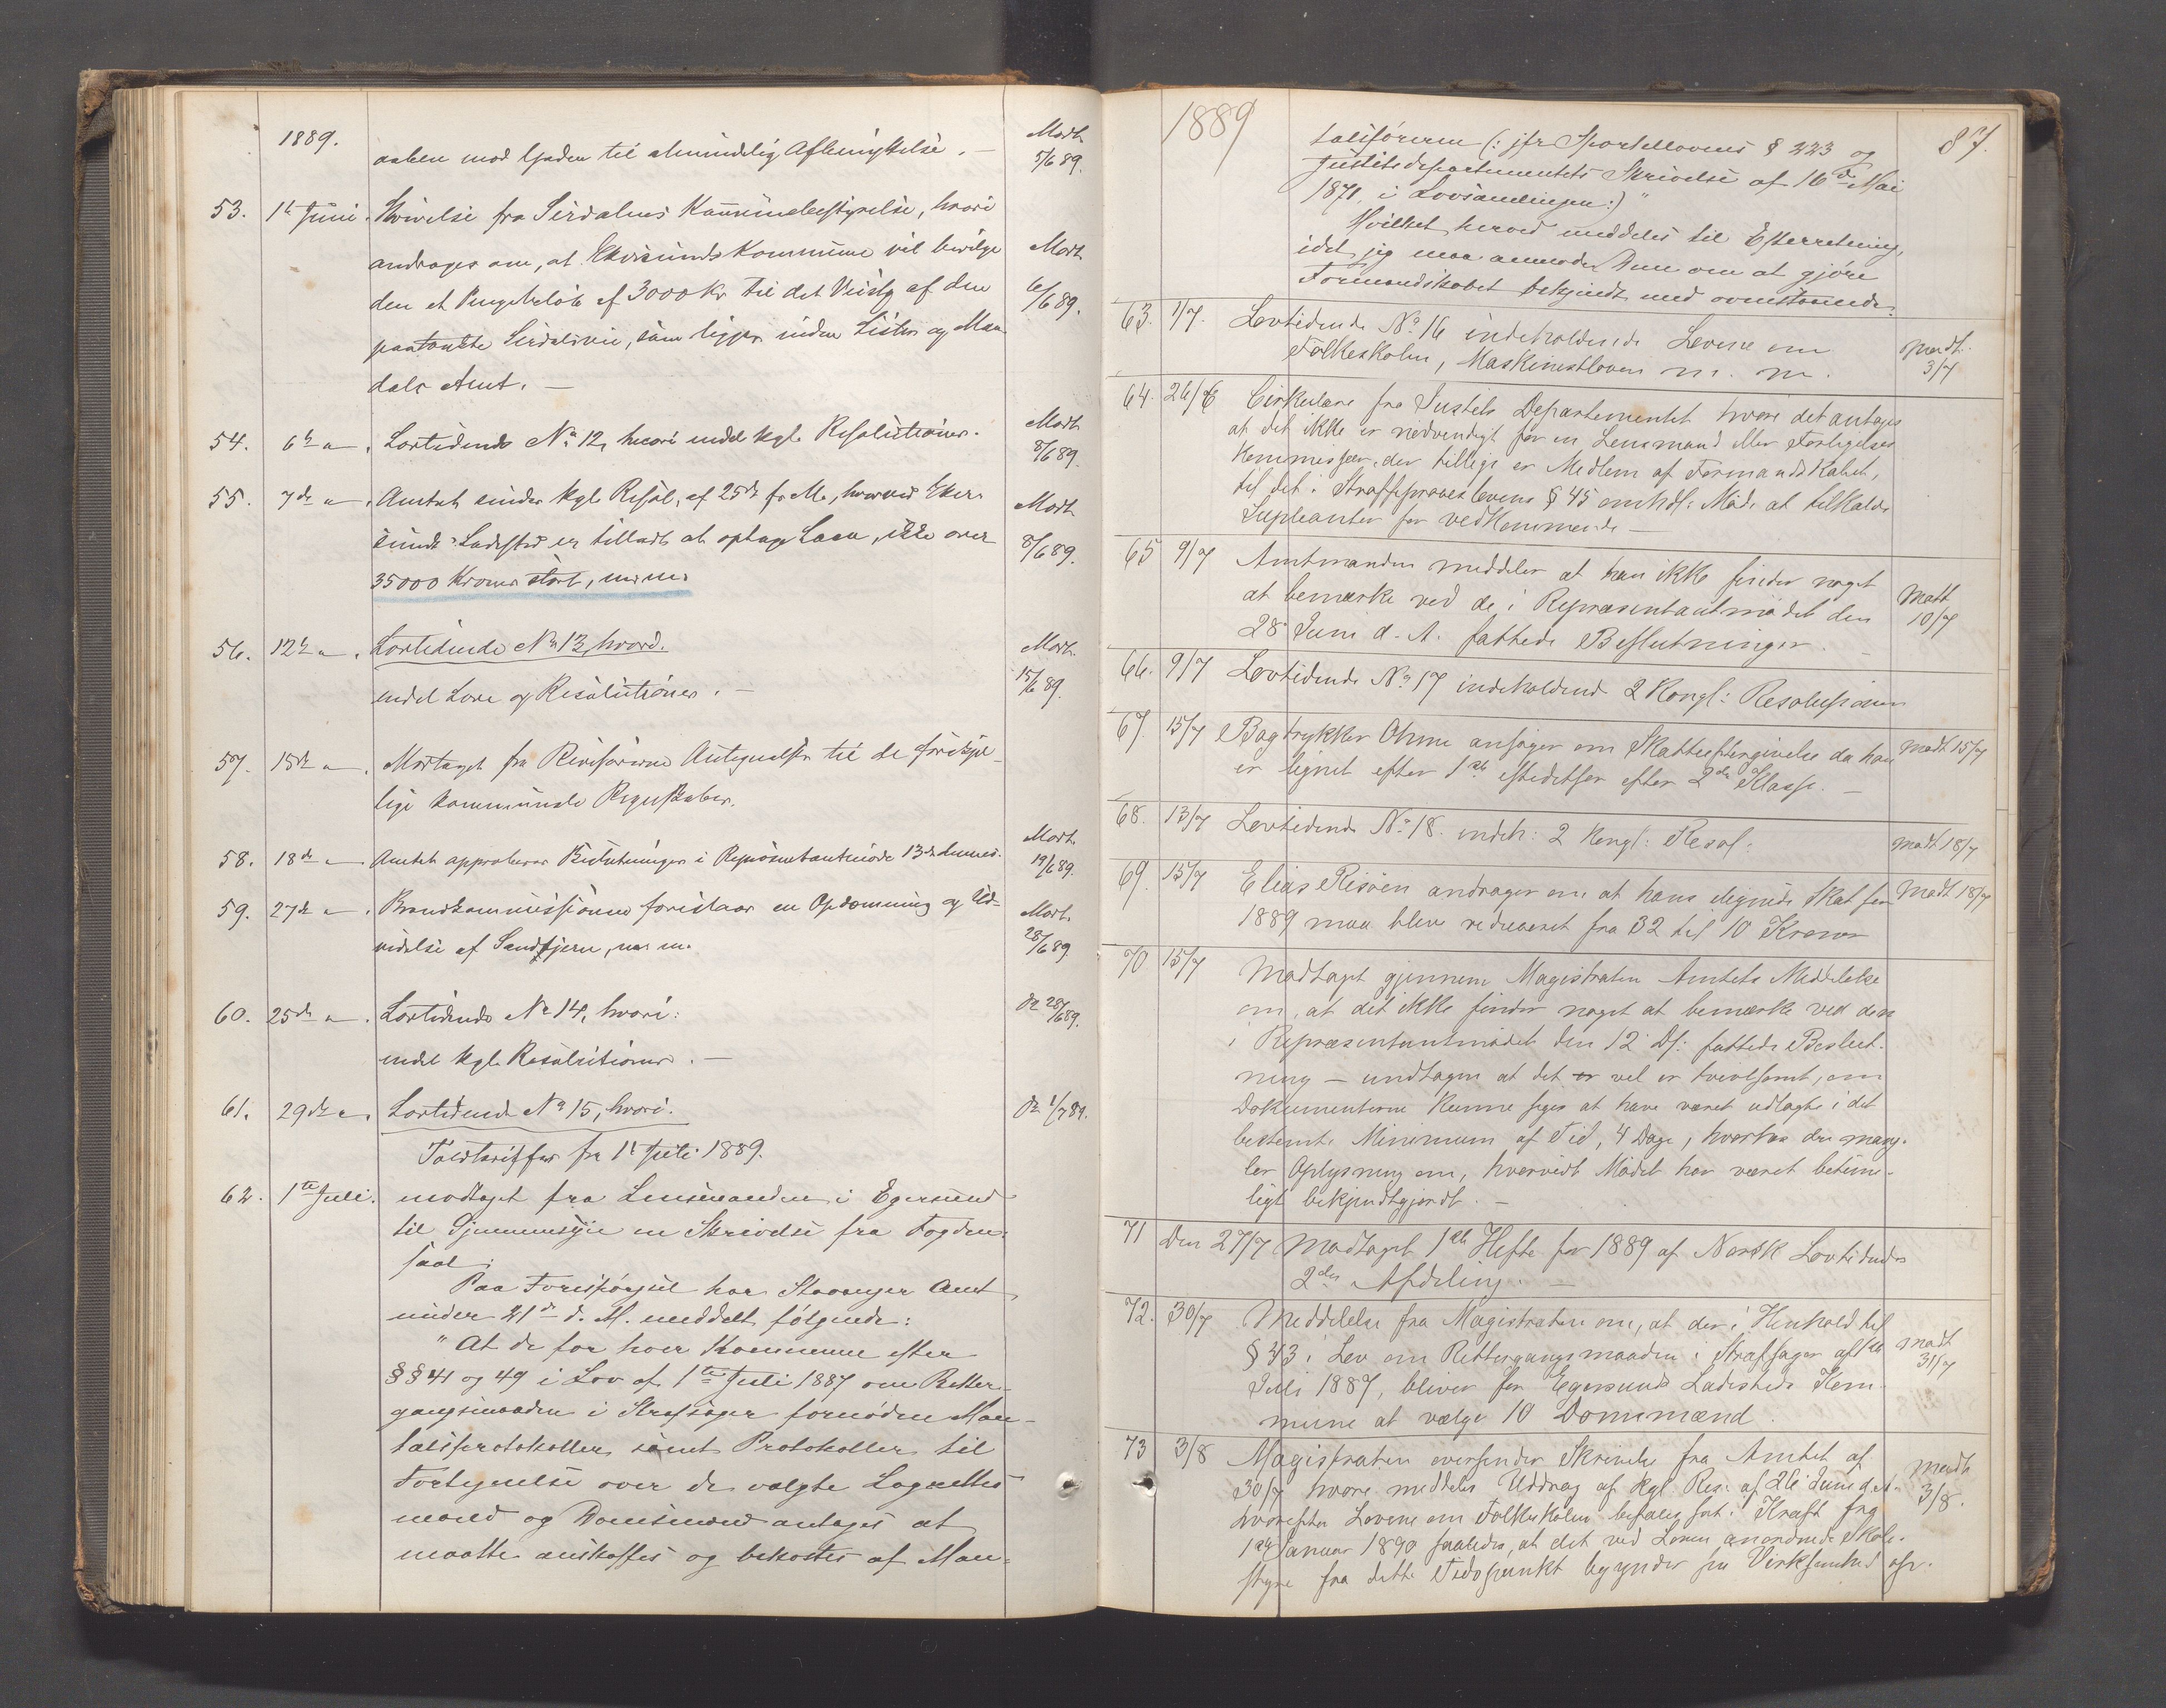 1889.
aaben mod Gaden til almindelig Afbenyttelse. —
Modt. 5/6 89.
53. 1ste Juni. Skrivelse fra Sirdalens Kommunebestyrelse, hvori
andrages om, at Ekersunds Kommune vil bevilge
Modt 6/6 89.
den et Pengebeløb af 3000 Kr til det Veistg af den
paatænkte Sirdalsvei, som ligger inden Lister og Man
dals Amt. —
54. 6te — Lovtidende No 12, hvori endel kgl. Resolutioner.
Modt. 8/6 89.
55. 7de — Amtet sender kgl. Resol. af 25de f. M., hvorved Eker-
Modt. 8/6 89.
sunds Ladested er tilladt at optage Laan, ikke over
35000 Kroner stort, m. m.
56. 12te — Lovtidende No 13, hvori.
Modt. 15/6 89.
endel Love og Resolutioner. —
57. 15de — Modtaget fra Revisorerne Antegnelser til de forskjel-
lige kommunale Regnskaber.
58. 18de — Amtet approberer Beslutninger i Repræsentantmøde 13de dennes.
Modt. 19/6 89.
59. 27de — Brandkommissionen foreslaar en Opdæmning og Ud-
Modt. 28/6 89
videlse af Sandtjern, m. m.
60. 25de — Lovtidende No 14, hvori:
Do 28/6 89.
endel kgl. Resolutioner. —
61. 29de — Lovtidende No 15, hvori.
Do 1/7 89.
Toldtariffer fra 1ste Juli 1889.
62. 1ste Juli. modtaget fra Lensmanden i Egersund
til Gjennemsyn en Skrivelse fra Fogden,
saal:
Paa Forespørgsel har Stavanger Amt
under 21de d. M. meddelt følgende:
"At de for hver Kommune efter
§§ 41 og 49 i Lov af 1ste Juli 1887 om Retter-
gangsmaaden i Strafsager fornødne Man-
talsprotokoller samt Protokoller til
Fortegnelse over de valgte Lagrettes-
mænd og Domsmænd antages at
maatte anskaffes og bekostes af Man-
1889
87.
talsføreren (: jfr Sportellovens § 223 og
Justitsdepartementets Skrivelse af 16de Mai
1871, i Lovsamlingen:)"
Hvilket herved meddeles til Efterretning,
idet jeg maa anmode Dem om at gjøre
Formandskabet bekjendt med ovenstaaende.
63. 1/7. Lovtidende No 16 indeholdende Lovene om
Folkeskolen, Maskinistloven m. m.
Modt. 3/7
64. 26/6 Cirkulære fra Justits Departementet hvori det antages
at det ikke er nødvendigt for en Lensmand eller Forligelses
Kommissær, der tillige er Medlem af Formandskabet,
til det i Straffeproceslovens § 45 omhdl: Møde at tilkalde
Supleanter for vedkommende —
65 9/7 Amtmanden meddeler at han ikke finder noget
at bemærke ved de i Repræsentantmødet den
28 Juni d. A. fattede Beslutninger. —
Modt 10/7
66. 9/7 Lovtidende No 17 indeholdend 2 Kongl: Resolusioner
67. 15/7 Bogtrykker Ohme ansøger om Skatteeftergivelse da han
er lignet efter 1ste istedetfor efter 2den Klasse. —
Modt 15/7
68. 13/7 Lovtidende No 18. indeh: 2 Kongl: Resol.
Modt 18/7
69. 15/7 Elias Risøen andrager om at hans lignede Skat for
1889 maa blive reduceret fra 32 til 10 Kroner
Modt 18/7
70 15/7 Modtaget gjennem Magistraten Amtets Meddelelse
om, at det ikke finder noget at bemærke ved den
i Repræsentantmødet den 12 ds: fattede Beslut-
ning — undtagen at det er vel er tvivlsomt, om
Dokumenterne kunne siges at have været udlagte i det
bestemte Minimum af Tid, 4 Dage, hvorhos der mang-
ler Oplysning om, hvorvidt Mødet har været betime-
ligt bekjendtgjordt. —
71 Den 27/7 Modtaget 1ste Hefte for 1889 af Norsk Lovtidende
2den Afdeling. —
72. 30/7 Meddelelse fra Magistraten om, at der i Henhold til
§ 43 i Lov om Rettergangsmaaden i Strafsager af 1ste
Juli 1887, bliver for Egersunds Ladesteds Kom-
mune at vælge 10 Domsmænd.
Modt 31/7
73 3/8 Magistraten oversender Skrivelse fra Amtet af
30/7 hvori meddeles Uddrag af kgl. Res. af 26 Juni d. A.
hvorefter Lovene om Folkeskolen befales sat i Kraft fra
1ste Januar 1890 saaledes, at det ved Loven anordnede Skole-
styre fra dette Tidspunkt begynder sin Virksomhed osv.
Modt 3/8.